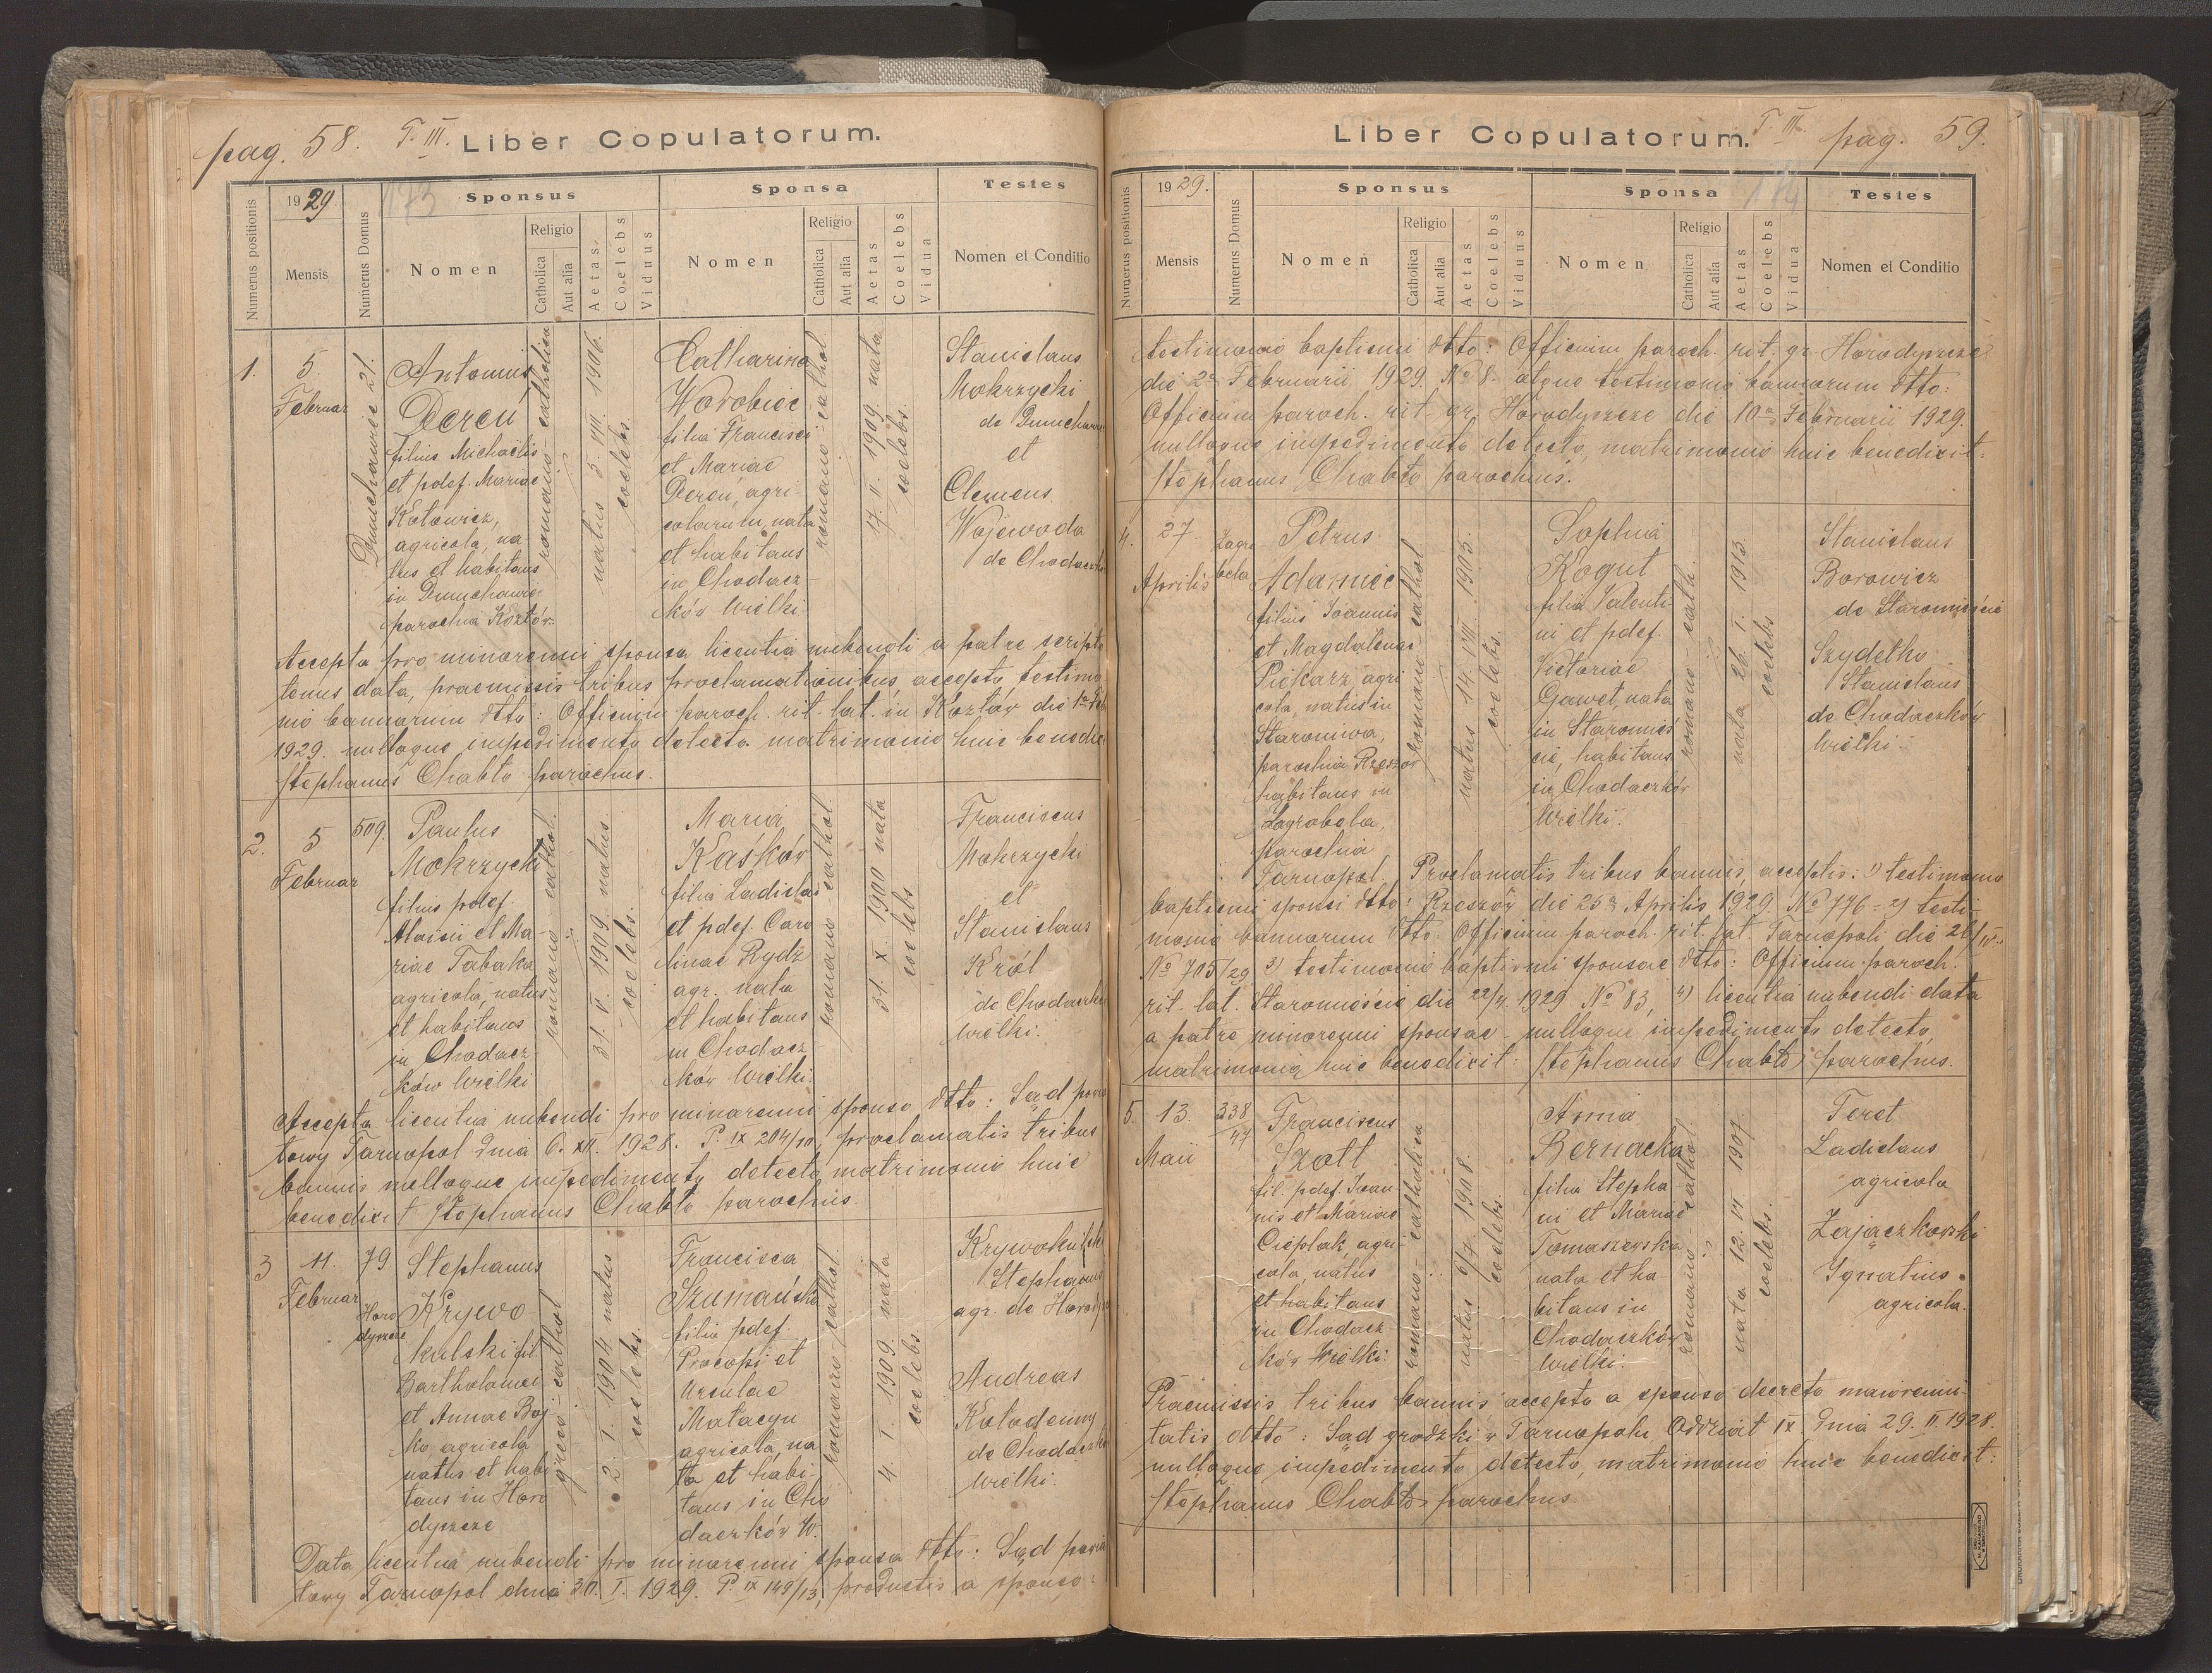 pag. 58. T. III. Liber Copulatorum.
Numerus positionis
1929.
Mensis
Numerus Domus
173
Sponsus
Nomen
Religio
Catholica
Aut alia
Aetas
Coelebs
Viduus
Sponsa
Nomen
Religio
Catholica
Aut alia
Aetas
Coelebs
Vidua
Testes
Nomen et Conditio
1.
5.
Februar
21.
Antonius
Dereń
filius Michaelis
et pdef. Mariae
Kotowicz,
agricola, na
tus et habitans
in
parochia Kozłów
romano-catholica
natus 5. VIII. 1906.
coelebs.
Catharina
Worobiec
filia Francisci
et Mariae
Dereń, agri
colarum, nata
et habitans
in Chodacz-
ków Wielki
romano-cathol.
17. II. 1909. nata
coelebs.
Stanislaus
Mokrzycki
de
et
Clemens
Wojewoda
de
Accepta pro minorenni sponsa licentia nubendi a patre
tenus data, praemissis tribus proclamationibus, accepto testimo
nio bannorum dtto: Officium paroch. rit. lat. in Kozłów die
1929. nulloque impedimento detecto matrimonio huic
Stephanus Chabło parochus.
2.
5
Februar
509.
Paulus
Mokrzycki
filius pdef.
Aloisii et Ma-
riae Tabaka
agricola, natus
et habitans
in Chodacz
ków Wielki
romano-cathol.
31. V. 1909 natus.
coelebs.
Maria
Kaśków
filia Ladislai
et pdef. Caro
linae Rydz
agr. nata
et habitans
in Chodacz-
ków Wielki.
romano cathol.
31. X. 1900 nata
coelebs
Franciscus
Mokrzycki
et
Stanislaus
Król
de
Wielki.
Accepta licentia nubendi pro minorenni sponso dtto: Sąd
towy Tarnopol dnia 6. XII. 1928. P. IX 204/10, proclamatis tribus
bannis nulloque impedimento detecto matrimonio huic
benedixit Stephanus Chabło parochus.
3
11.
Februar
79
Horo
dyszcze
Stephanus
Krywo-
kulski fil
Bartholomei
et Annae Boj-
ko agricola
natus et habi
tans in Horo
dyszcze
greco-cathol.
2. I. 1904 natus
coelebs.
Francisca
Szumańska
filia pdef.
Procopi et
Ursulae
Matacyn
agricola, na
ta et habi
tans in Cho
daczków W.
romano cathol.
4. I. 1909. nata
coelebs.
Stephanus
agr. de
Andreas
de
Wielki.
Data licentia nubendi pro minorenni sponsa dtto: Sąd
towy Tarnopol dnia 30. I. 1929. P. IX 149/13, productis a sponso:
Liber Copulatorum. T. III. pag. 59.
Numerus positionis
1929.
Mensis
Numerus Domus
Sponsus
Nomen
Religio
Catholica
Aut alia
Aetas
Coelebs
Viduus
Sponsa
Nomen
Religio
Catholica
Aut alia
Aetas
Coelebs
Vidua
Testes
Nomen et Conditio
testimonio baptismi dtto: Officium paroch. rit. gr. Horodyszcze
die 2a Februarii 1929. No 8. atque testimonio bannorum dtto:
Officium paroch. rit. gr. Horodyszcze die 10a Februarii 1929.
nulloque impedimento detecto, matrimonio huic benedixit:
Stephanus Chabło parochus.
4.
27.
Aprilis
Zagro
bela
Petrus
Adamiec
filius Joannis
et Magdalenae
Piekarz, agri
cola, natus in
Staroniwa,
parochia Rzeszów
habitans in
Zagrobela,
parochia
Tarnopol.
romano-cathol.
natus 14. VII. 1905.
coelebs.
Sophia
Kogut
filia Valenti-
ni et pdef.
Victoriae
Gaweł, nata
in Staromieś
cie, habitans
in Chodaczków
Wielki.
romano-cath.
nata 26. I. 1913.
coelebs
Stanislaus
Borowicz
de Staromieście
Szydełko
Stanislaus
de Chodaczków
Wielki.
Proclamatis tribus bannis, acceptis: 1) testimonio
baptismi sponsi dtto: Rzeszów die 25a Aprilis 1929 No 776 - 2) testi-
monio bannorum dtto Officium paroch. rit. lat. Tarnopoli die
No 705/29 3) testimonio baptismi sponsae dtto: Officium paroch.
rit. lat. Staromieście die 1929 No 83, 4) licentia nubendi data
a patre minorenni sponsae - nulloque impedimento detecto,
matrimonio huic benedixit: Stephanus Chabło parochus.
5.
13.
Maii
338
47
Franciscus
Szatt
fil. pdef. Joan-
nis et Mariae
Cieplak, agri-
cola, natus
et habitans
in Chodacz
ków Wielki.
romano-catholica
natus 6/7. 1908.
coelebs.
Anna
Bernacka
filia Stepha-
ni et Mariae
Tomaszewska
nata et ha-
bitans in
Chodaczków
Wielki.
romano cathol.
nata 12. 1907.
coelebs.
Teret
Ladislaus
agricola
Zajączkowski
Ignatius
agricola.
Praemissis tribus bannis accepto a sponso decreto maiorenni-
tatis dtto: Sąd grodzki w Tarnopolu Oddział IX dnia 29. II. 1928.
nulloque impedimento detecto, matrimonio huic benedixit:
Stephanus Chabło parochus.